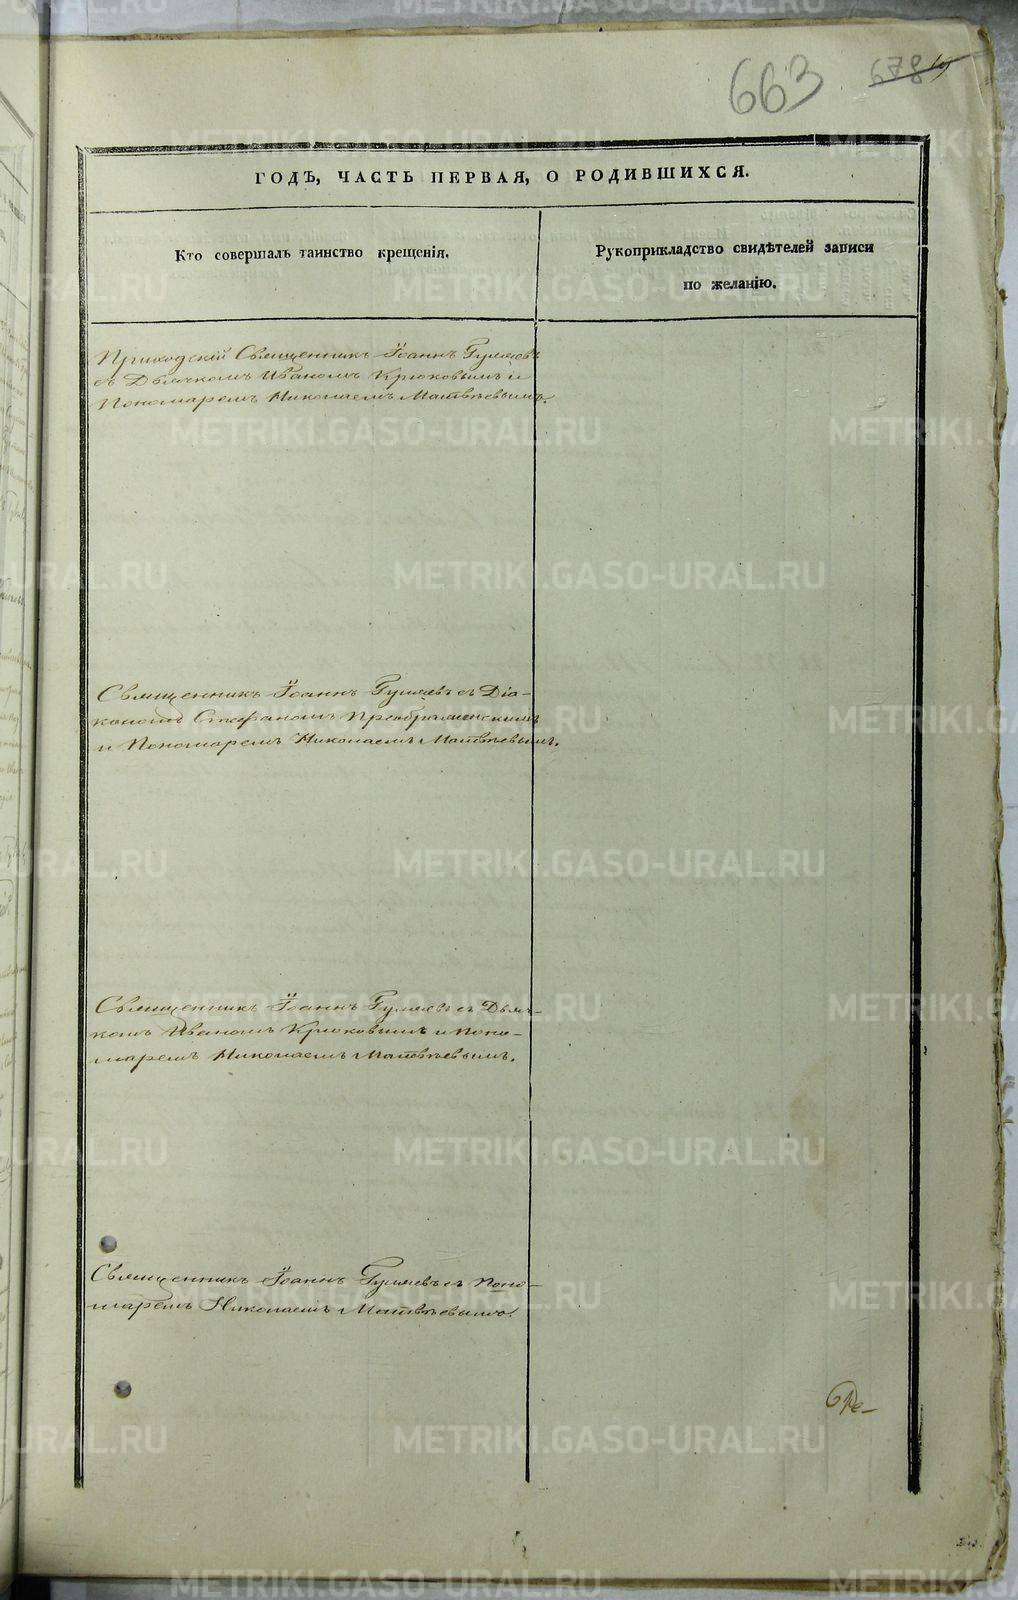 663
678
ГОДЪ, ЧАСТЬ ПЕРВАЯ, О РОДИВШИХСЯ.
Кто совершалъ таинство крещенія.
Рукоприкладство свидѣтелей записи
по желанію.
Приходскій Священникъ Іоаннъ Гуляевъ
съ Дьячкомъ Иваномъ Крюковымъ и
Пономаремъ Николаемъ Матвѣевымъ.
Священникъ Іоаннъ Гуляевъ съ Діа-
кономъ Стефаномъ Преображенскимъ
и Пономаремъ Николаемъ Матвѣевымъ.
Священникъ Іоаннъ Гуляевъ съ Дьяч-
комъ Иваномъ Крюковымъ и Поно-
маремъ Николаемъ Матвѣевымъ.
Священникъ Іоаннъ Гуляевъ съ Поно-
маремъ Николаемъ Матвѣевымъ.
METRIKI.GASO-URAL.RU